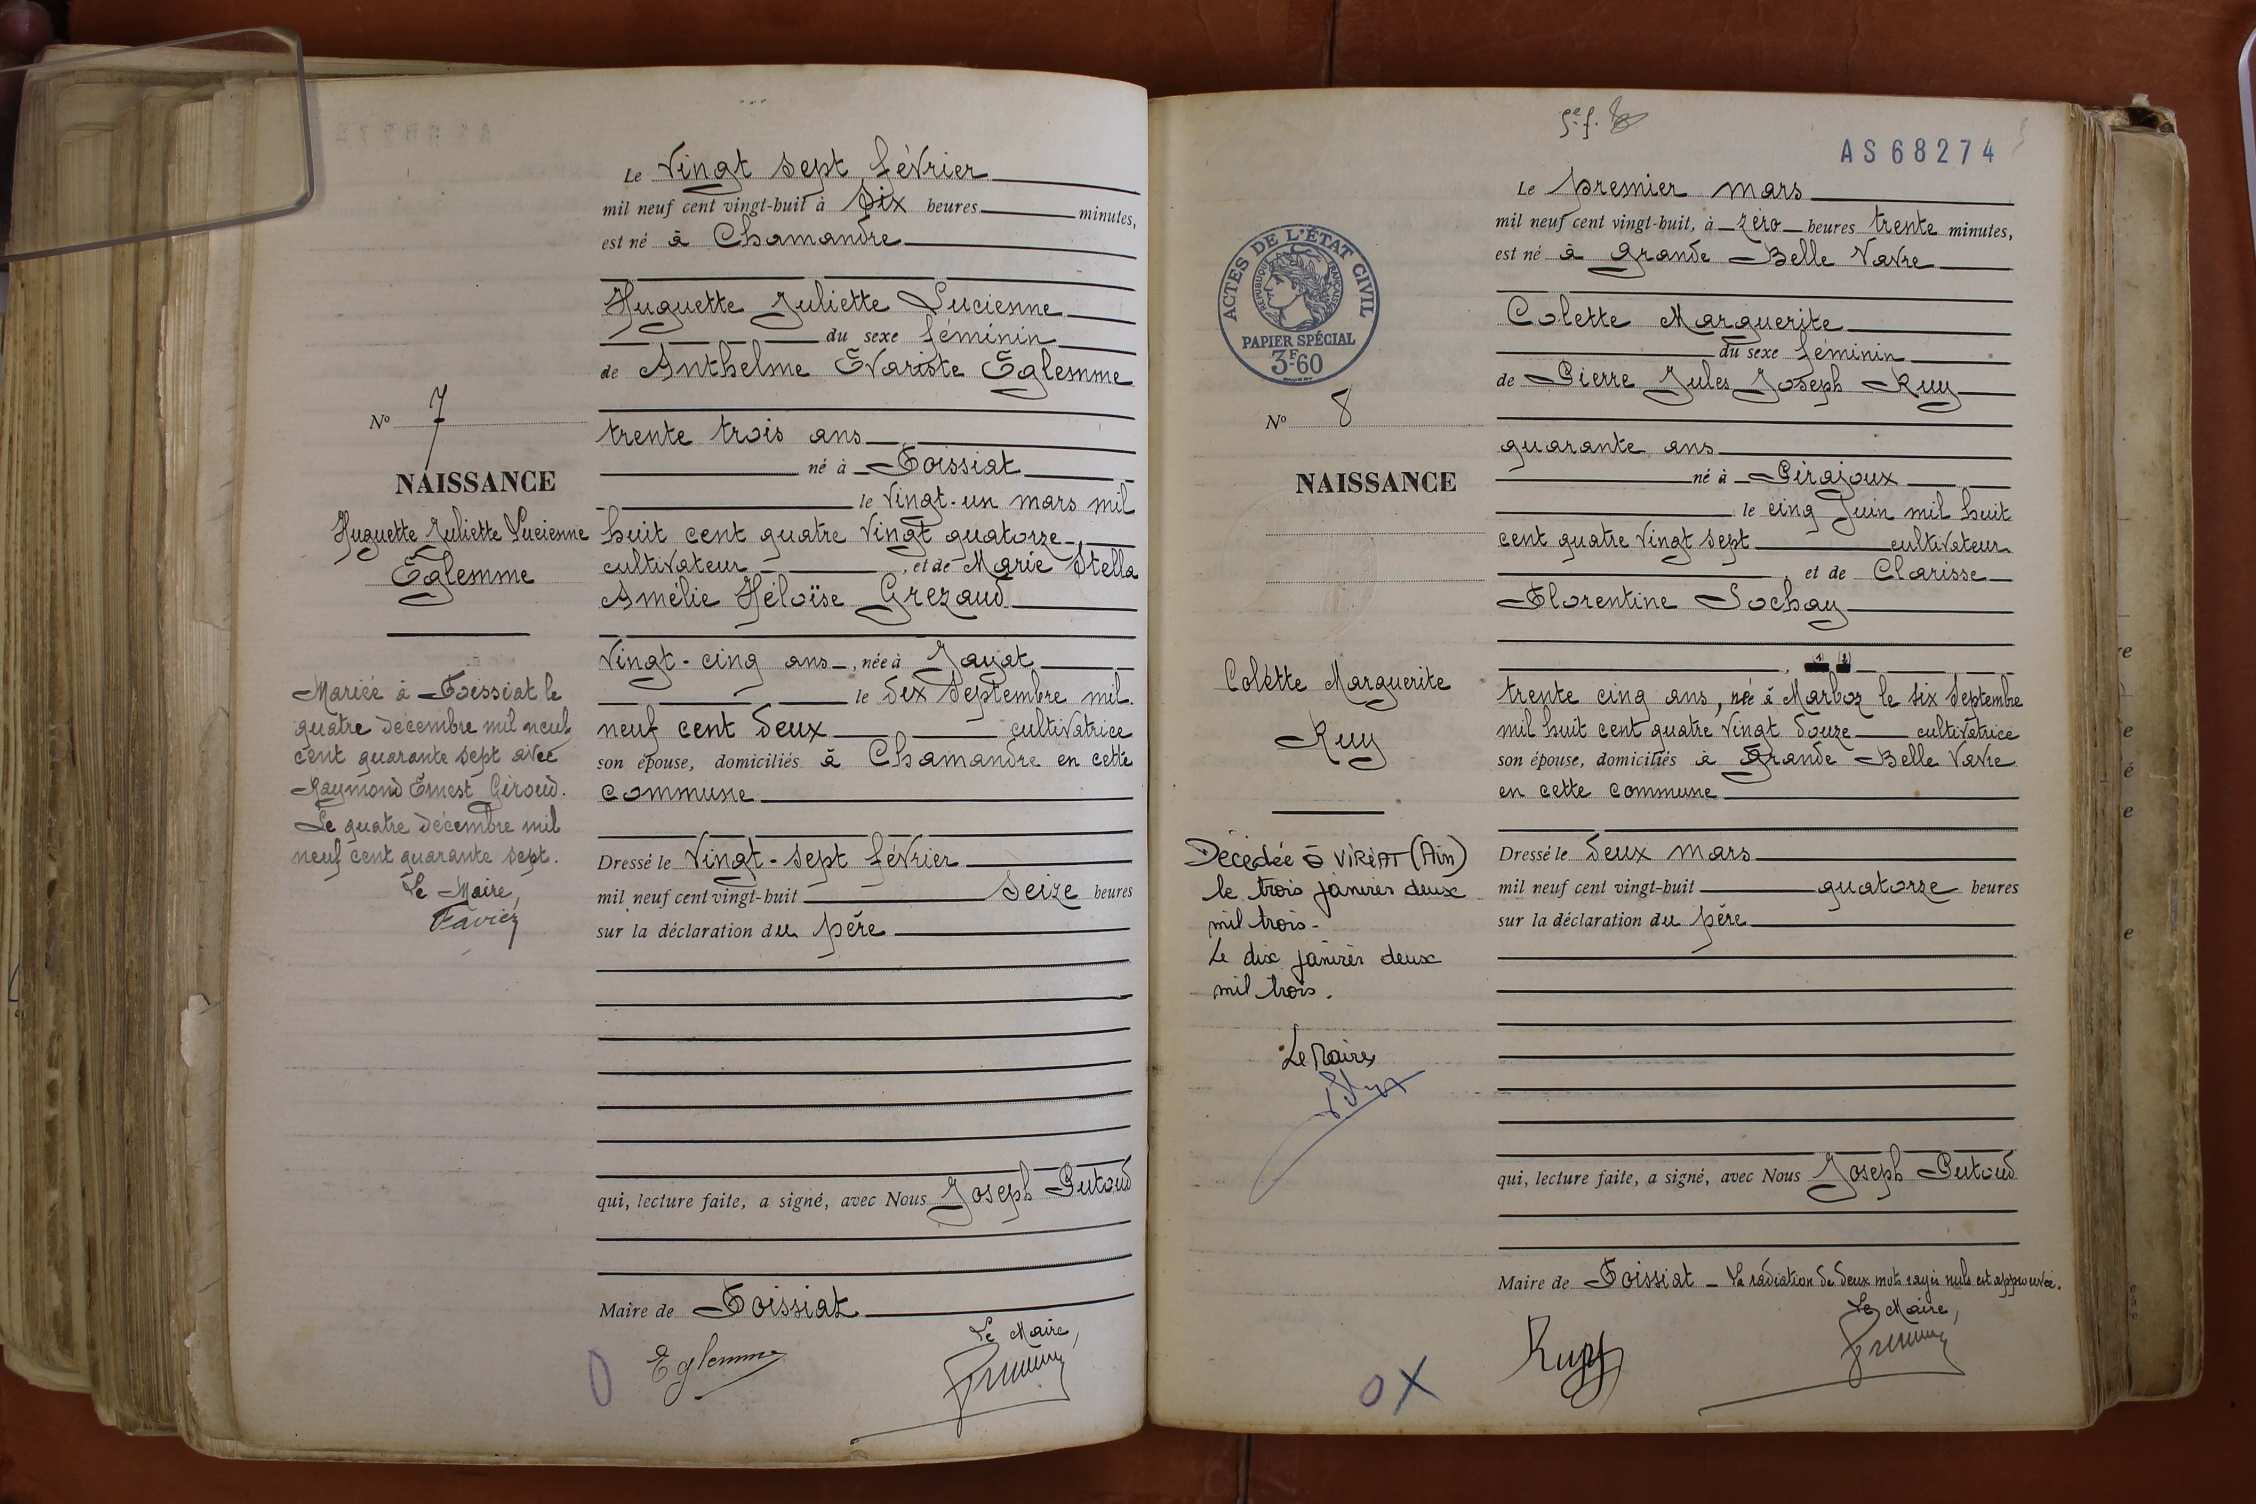 Le Vingt sept février
mil neuf cent vingt-huit à Six heures minutes,
est né à Chamandre
Huguette Juliette Lucienne
du sexe féminin
de Anthelme Evariste Eglemme
trente trois ans
né à Foissiat
le vingt-un mars mil
huit cent quatre vingt quatorze
cultivateur, et de Marie Stella
Amélie Héloïse Grezaud
Vingt-cinq ans, née à Jayat
le dix Septembre mil
neuf cent deux cultivatrice
son épouse, domiciliés à Chamandre en cette
commune
Dressé le Vingt-sept février
mil neuf cent vingt-huit Seize heures
sur la déclaration du père
qui, lecture faite, a signé, avec Nous Joseph Putoud
Maire de Foissiat
Le Maire,
Eglemme
No 7
NAISSANCE
Huguette Juliette Lucienne
Eglemme
Mariée à Foissiat le
quatre décembre mil neuf
cent quarante sept avec
Raymond Ernest Giroud.
Le quatre décembre mil
neuf cent quarante sept.
Le Maire,
AS68274
ACTES DE L'ÉTAT CIVIL
RÉPUBLIQUE FRANÇAISE
PAPIER SPÉCIAL
3F-60
Le premier mars
mil neuf cent vingt-huit, à zéro heures trente minutes,
est né à Grande Belle Vavre
Colette Marguerite
du sexe féminin
de Pierre Jules Joseph Ruy
quarante ans
né à Pirajoux
le cinq Juin mil huit
cent quatre vingt sept cultivateur
, et de Clarisse
Florentine Sochay
(1) (2)
trente cinq ans, née à Marboz le six Septembre
mil huit cent quatre vingt douze cultivatrice
son épouse, domiciliés à Grande Belle Vavre
en cette commune
Dressé le deux mars
mil neuf cent vingt-huit quatorze heures
sur la déclaration du père
qui, lecture faite, a signé, avec Nous Joseph Putoud
Maire de Foissiat - La radiation de deux mots rayés nuls est approuvée.
Le Maire,
Ruy
No 8
NAISSANCE
Colette Marguerite
Ruy
Décédée à VIRIAT (Ain)
le trois janvier deux
mil trois-
Le dix janvier deux
mil trois.
Le Maire